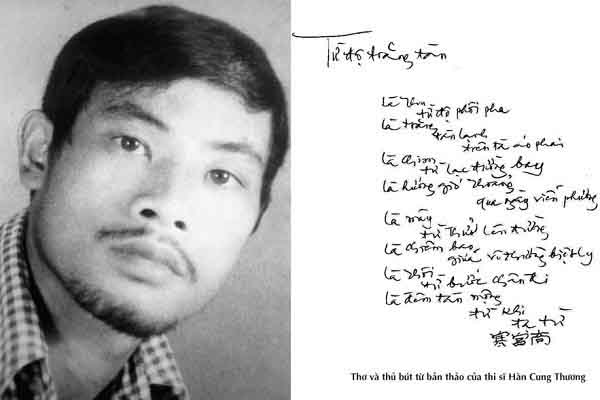 Từ độ trăng tàn
Là thu
từ độ phôi pha
Là trăng
tàn lạnh
trên tà áo phai
Là chim
từ lạc đường bay
Là hương gió thoảng
qua ngày viễn phương
Là mây
từ thuở lên đường
Là chiêm bao
giữa vô thường biệt ly
Là thôi
từ bước chân đi
Là đêm tàn mộng
từ khi
ta từ
寒宮商
Thơ và thủ bút từ bản thảo của thi sĩ Hàn Cung Thương